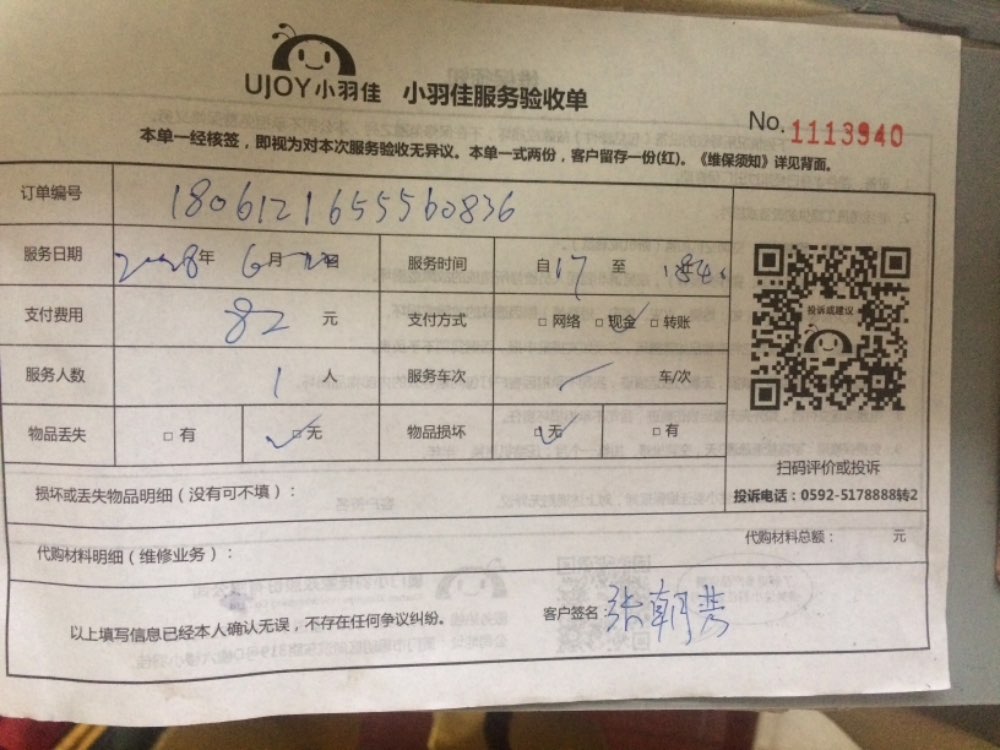 UJOY小羽佳 小羽佳服务验收单
No.1113940
本单一经核签，即视为对本次服务验收无异议。本单一式两份，客户留存一份(红)。《维保须知》详见背面。
订单编号 1806121655560836
服务日期 2018年 6月 日 服务时间 自17至
支付费用 82 元 支付方式 □网络 □现金 ✓ □转账
服务人数 1 人 服务车次 车/次
物品丢失 □有 □无 ✓ 物品损坏 □无 ✓ □有
投诉或建议
扫码评价或投诉
投诉电话：0592-5178888转2
损坏或丢失物品明细（没有可不填）：
代购材料明细（维修业务）：
代购材料总额： 元
以上填写信息已经本人确认无误，不存在任何争议纠纷。
客户签名：张朝